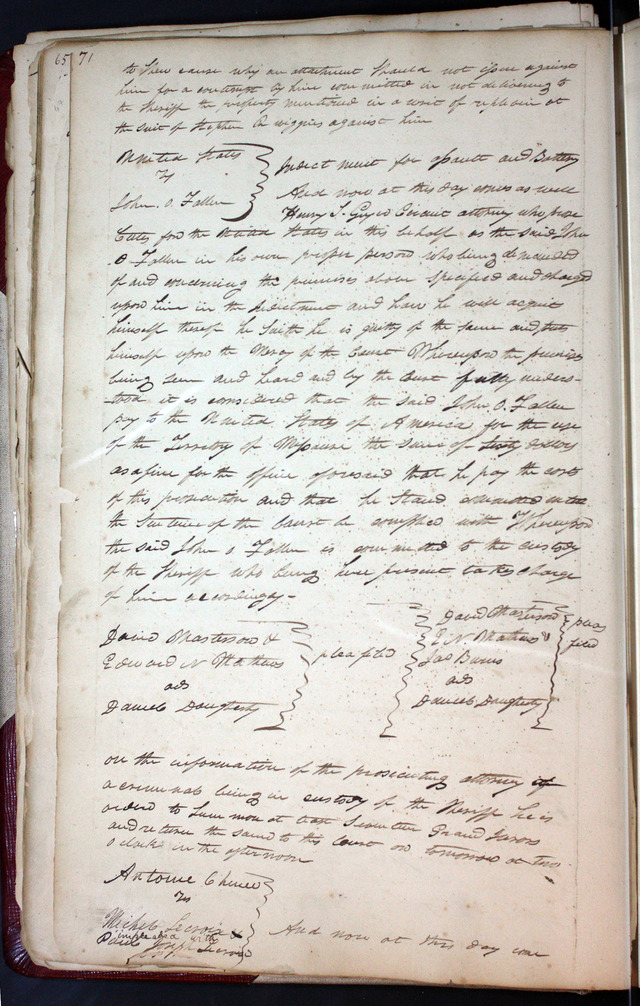 65 71
to shew cause why an attachment should not issue against
him for a contempt by him committed in not delivering to
the Sheriff the property mentioned in a writ of replevin at
the suit of Stephen R Wiggins against him
United States
vs
John. O. Fallen
Indictment for assault and Battery
And now at this day comes as well
Henry S. Geyer Circuit attorney who prose
cutes for the United States in this behalf as the said John
O Fallen in his own proper person who being demanded
of and concerning the premises above specified and charged
upon him in the Indictment and how he will acquit
himself thereof he saith he is guilty of the same and puts
himself upon the Mercy of the Court Whereupon the premises
being seen and heard and by the Court fully unders-
tood it is considered that the said John O. Fallen
pay to the United States of America for the use
of the Territory of Missouri the sum of sixty dollars
as a fine for the offence aforesaid that he pay the costs
of this prosecution and that he stand committed until
the Sentence of the Court be complied with Whereupon
the said John O Fallen is committed to the custody
of the Sheriff who being here present takes charge
of him accordingly-
David Masterson &
Edward N Mathews
ads
Daniel Dougherty
plea filed
David Masterson
E N Mathews &
Jas Burns
ads
Daniel Dougherty
pleas
filed
on the information of the prosecuting attorney of
a criminal being in custody of the Sheriff he is
ordered to summon at least Seventeen Grand Jurors
and return the same to this Court on tomorrow at two
o clock in the afternoon
Antoine Chenie
vs
Michel Lecroix &
impleaded with
Joseph Lecroix
And now at this day come